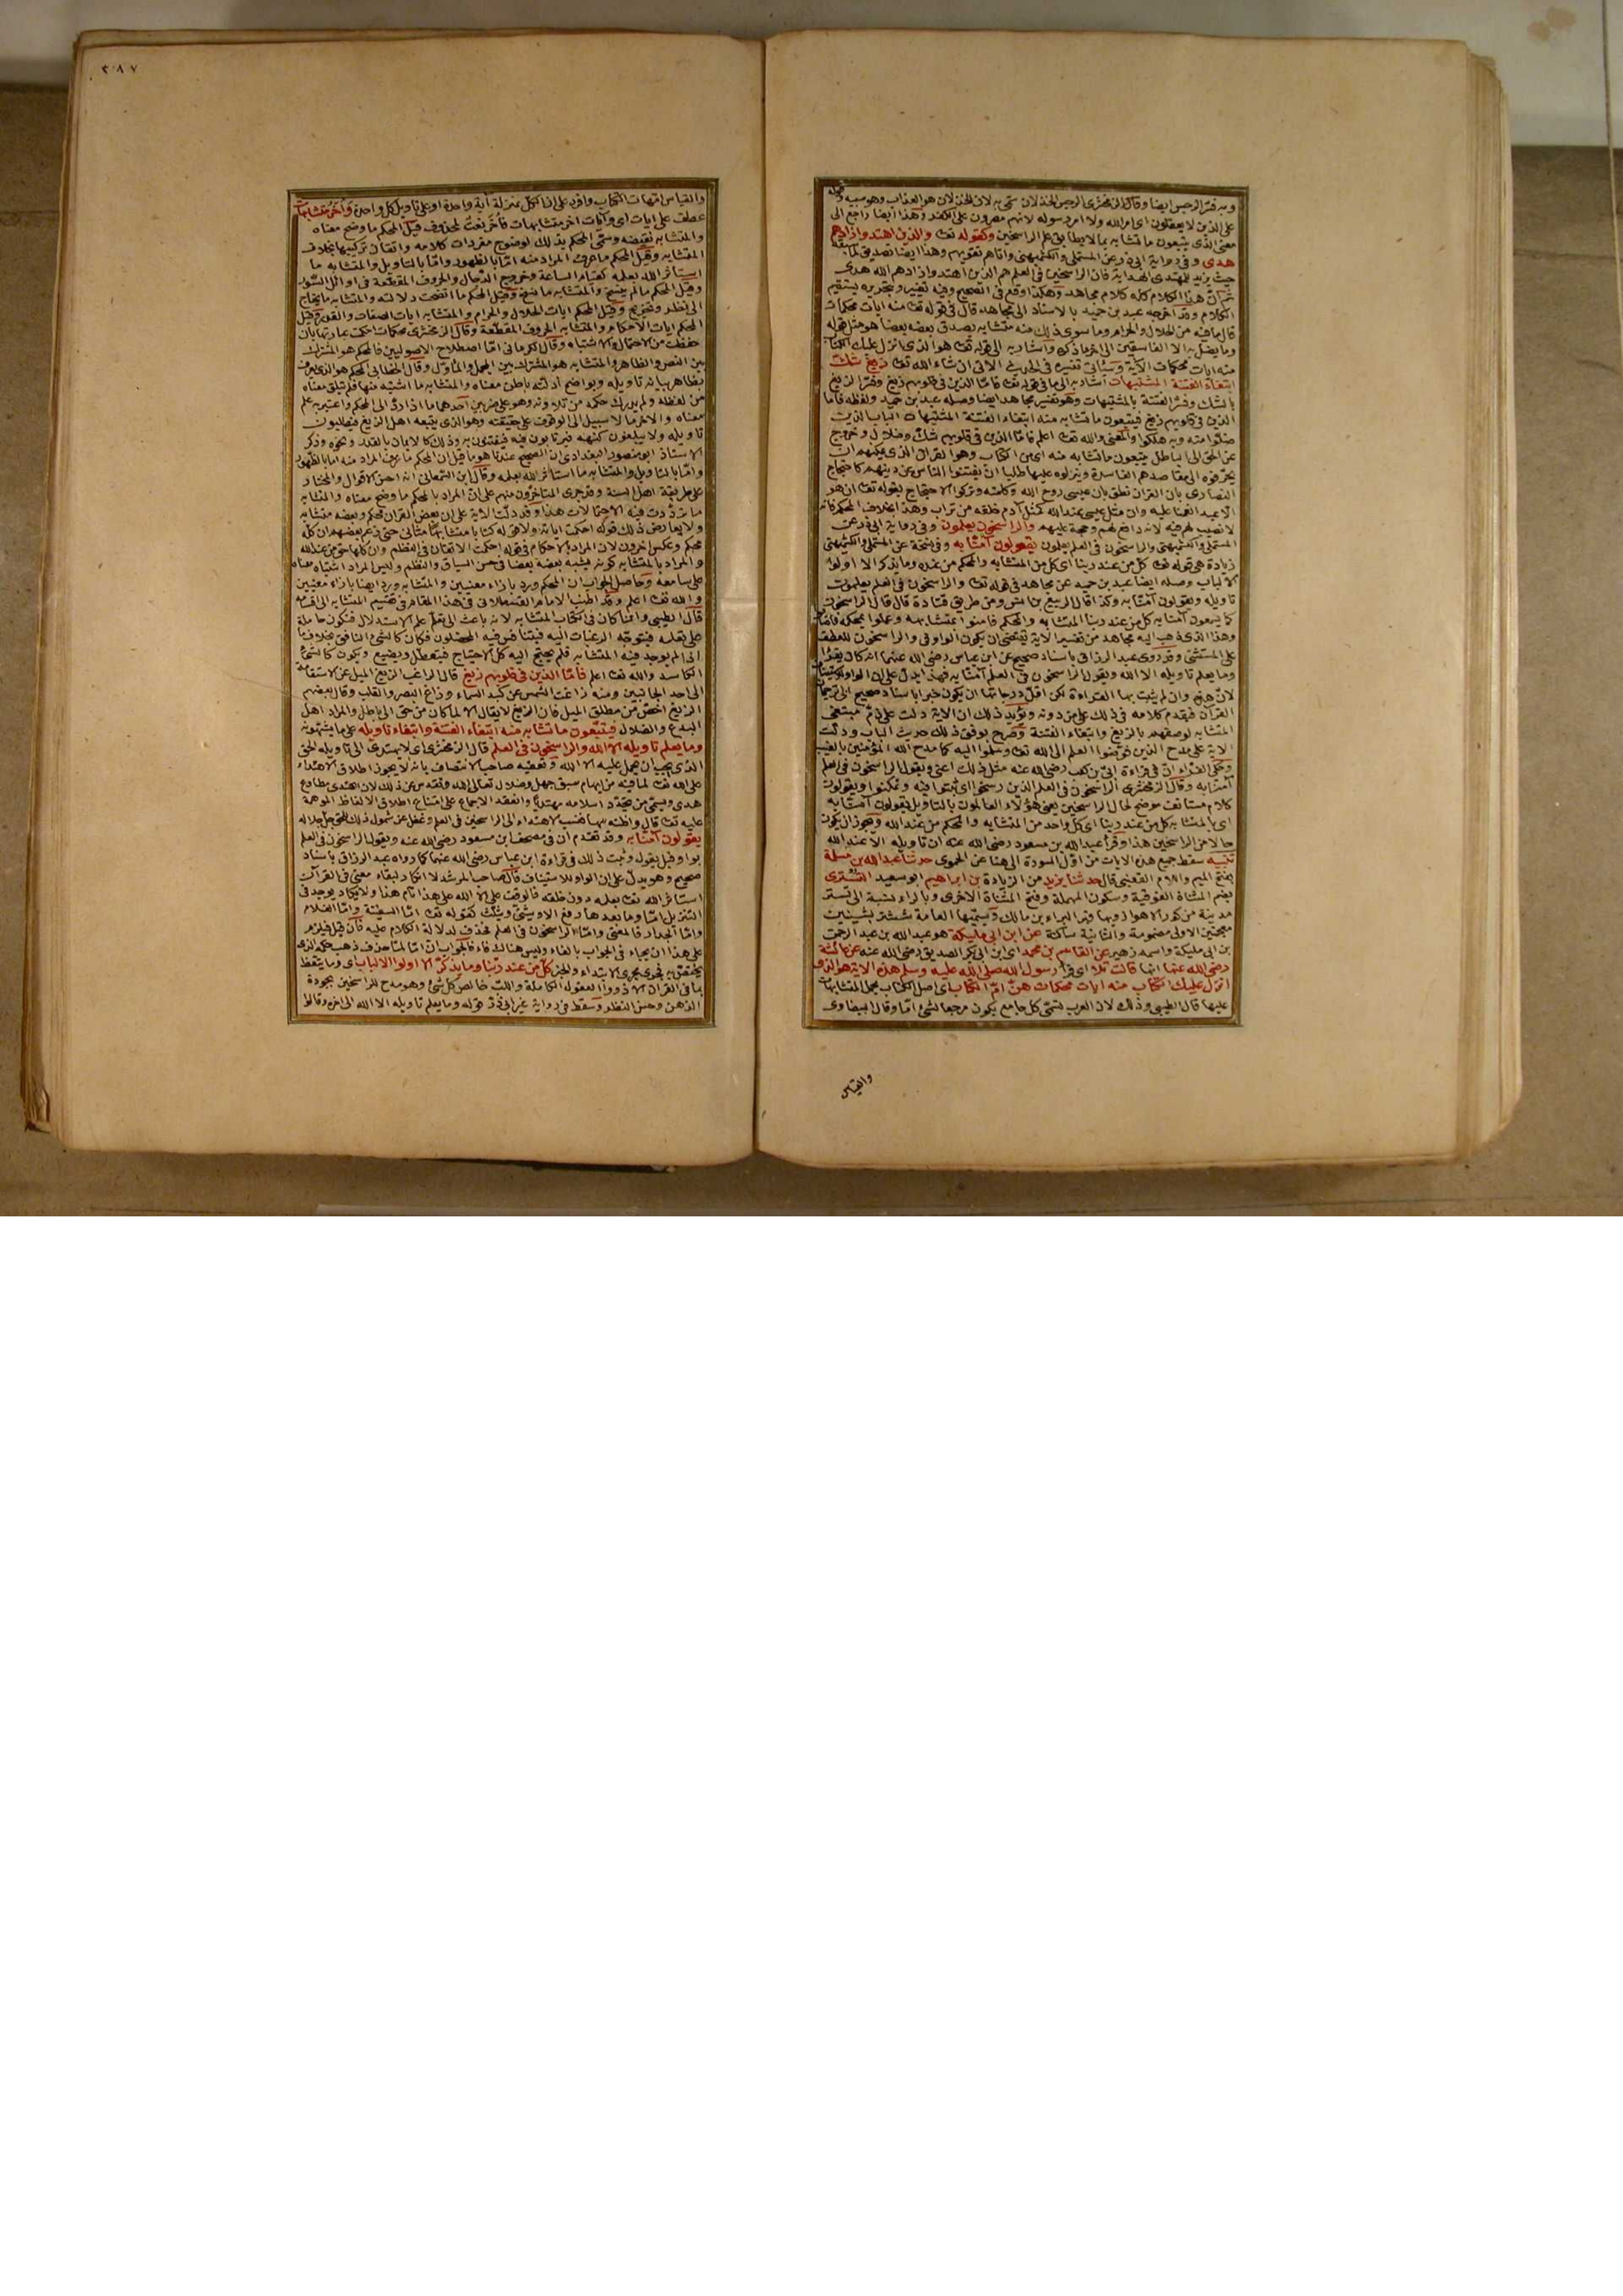 وبه فسّر الرجس ايضا وقال الزمخشرى الرجس الخذلان سمّى به لان الخذلان هو العذاب وهو سببه وقوله
على الذين لا يعقلون اى امر الله ولا امر رسوله لانهم مصرون على الكفر وهذا ايضا راجع الى
معنى الذى يتبعون ما تشابه بما لا يطابق علم الراسخين وكقوله تعا والذين اهتدوا زادهم
هدى وفى رواية ابى ذر عن المستملى والكشميهنى وآتاهم تقويهم وهذا ايضا تصديق لما يتفق
حيث يزيد للمهتدى الهداية فان الراسخين فى العلم هم الذين اهتدوا زادهم الله هدى
ثم ان هذا الكلام كله كلام مجاهد وهكذا وقع فى الصحيح وفيه تغيير وبتحريره يستقيم
الكلام وقد اخرجه عبد بن حميد بالاسناد الى مجاهد قال فى قوله تعا منه ايات محكمات
قال ما فيه من الحلال والحرام وما سوى ذلك منه متشابه يصدق بعضه بعضا هو مثل قوله
وما يضل به الا الفاسقين الى اخر ما ذكره واشار به الى قوله تعا هو الذى انزل عليك الكتاب
منه ايات محكمات الآية وسيأتى تفسيره فى الحديث الاتى ان شاء الله تعا زيغ شكّ
ابتغاء الفتنة المشتبهات اشار به الى ما فى قوله تعا فامّا الذين فى قلوبهم زيغ وفسّر الزيغ
بالشك وفسّر الفتنة بالمشتبهات وهو تفسير مجاهد ايضا وصله عبد بن حميد ولفظه فامّا
الذين فى قلوبهم زيغ فيتبعون ما تشابه منه ابتغاء الفتنة المشتبهات الباب الذين
ضلوا منه وبه هلكوا والمعنى والله تعا اعلم فامّا الذين فى قلوبهم شكّ وضلال وخروج
عن الحق الى الباطل يتبعون ما تشابه منه اى من الكتاب وهو القران الذى يمكنهم ان
يحرّفوه الى مقاصدهم الفاسدة وينزلوه عليها طلبا ان يفتنوا الناس عن دينهم كاحتجاج
النصارى بان القران نطق بان عيسى روح الله وكلمته وتركوا الاحتجاج بقوله تعا ان هو
الا عبد انعمنا عليه وان مثل عيسى عند الله كمثل آدم خلقه من تراب وهذا بخلاف المحكم فانه
لا نصيب لهم فيه لانه دافع لهم وحجة عليهم والراسخون يعلمون وفى رواية ابى ذر عن
المستملى والكشميهنى والراسخون فى العلم يعلمون يقولون آمنّا به وفى نسخة عن المستملى والكشميهنى
زيادة هى قوله تعا كل من عند ربنا اى كل من المتشابه والمحكم من عنده وما يذكر الا اولوا
الالباب وصله ايضا عبد بن حميد عن مجاهد فى قوله تعا والراسخون فى العلم يعلمون
تاويله ويقولون آمنّا به وكذا قال الربيع بن انس ومن طريق قتادة قال قال الراسخون
كما يسمعون آمنا به كل من عند ربنا المتشابه والمحكم فامنوا بمتشابهه وعملوا بمحكمه
وهذا الذى ذهب اليه مجاهد من تفسير الاية يقتضى ان يكون الواو فى والراسخون للعطف
على المستثنى وقد روى عبد الرزاق باسناد صحيح عن ابن عباس رضى الله عنهما انه كان يقرأ
وما يعلم تاويله الا الله ويقول الراسخون فى العلم آمنّا به فهذا يدل على ان الواو للاستيناف
لان هذه وان لم يثبت بها القراءة لكن اقل درجاتها ان يكون خبرا باسناد صحيح الى ترجمان
القرآن فيقدم كلامه فى ذلك على من دونه ويؤيد ذلك ان الاية دلت على ذمّ مبتغى
المتشابه لوصفهم بالزيغ وابتغاء الفتنة وصرّح بوفق ذلك حديث الباب ودلّت
الآية على مدح الذين فوّضوا العلم الى الله تعا وسلموا اليه كما مدح الله المؤمنين بالغيب
وحكى الفراء ان فى قراءة ابىّ بن كعب رضى الله عنه مثل ذلك اعنى ويقول الراسخون فى العلم
آمنّا به وقال الزمخشرى الراسخون فى العلم الذين رسخوا اى ثبتوا فيه وتمكنوا ويقولون
كلام مستانف موضح لحال الراسخين يعنى هؤلاء العالمون بالتاويل يقولون آمنّا به
اى بالمتشابه كل من عند ربنا اى كل واحد من المتشابه والمحكم من عند الله ويجوز ان يكون
حالا من الراسخين هذا وقرأ عبد الله بن مسعود رضى الله عنه ان تاويله الا عند الله
تنبيه سقط جميع هذه الايات من اوّل السورة الى هنا عن الحموى حدثنا عبد الله بن مسلمة
بفتح الميم واللام القعنبى قال حدثنا يزيد من الزيادة بن ابراهيم ابو سعيد التسترى
بضم المثناة الفوقية وسكون المهملة وفتح المثناة الاخرى وبالراء نسبة الى تستر
مدينة من كور الاهواز وبها قبر البراء بن مالك وتسميها العامة ششتر بشينين
معجمتين الاولى مضمومة والثانية ساكنة عن ابن ابى مليكة هو عبد الله بن عبد الرحمن
بن ابى مليكة واسمه زهير عن القاسم بن محمد اى ابن ابى بكر الصديق رضى الله عنه عن عائشة
رضى الله عنها انها قالت تلا اى قرأ رسول الله صلى الله عليه وسلم هذه الاية هو الذى
انزل عليك الكتاب منه ايات محكمات هنّ امّ الكتاب اى اصل الكتاب يحمل المتشابهات
عليها قال الطيبى وذلك لان العرب تسمّى كل جامع يكون مرجعا لشئ امّا وقال البيضاوى
والقياس
٣٠٨٧
والقياس امّهات الكتاب وافرد على ان الكل بمنزلة آية واحدة او على تاويل كل واحدة وأخر متشابهات
عطف على ايات اى وآيات اخر متشابهات فأخر نعت لمحذوف قيل المحكم ما وضح معناه
والمتشابه نقيضه وسمّى المحكم بذلك لوضوح مفردات كلامه واتقان تركيبها بخلاف
المتشابه وقيل المحكم ما عرف المراد منه امّا بالظهور وامّا بالتاويل والمتشابه ما
استأثر الله بعلمه كقيام الساعة وخروج الدّجال والحروف المقطّعة فى اوائل السّور
وقيل المحكم ما لم ينسخ والمتشابه ما نسخ وقيل المحكم ما اتضحت دلالته والمتشابه ما يحتاج
الى نظر وتخريج وقيل المحكم ايات الحلال والحرام والمتشابه ايات الصفات والقدر وقيل
المحكم ايات الاحكام والمتشابه الحروف المقطّعة وقال الزمخشرى محكمات احكمت عبارتها بان
حفظت من الاحتمال والاشتباه وقال الكرمانى امّا اصطلاح الاصوليين فالمحكم هو المشترك
بين النص والظاهر والمتشابه هو المشترك بين المجمل والمأوّل وقال الخطابى المحكم هو الذى يعرف
بظاهر بيانه تاويله وبواضح ادلته باطن معناه والمتشابه ما اشتبه منها فلم يتلق معناه
من لفظه ولم يدرك حكمه من تلاوته وهو على ضربين احدهما ما اذا ردّ الى المحكم واعتبر به علم
معناه والاخر ما لا سبيل الى الوقوف على حقيقته وهو الذى يتبعه اهل الزيغ فيطلبون
تاويله ولا يبلغون كنهه فيرتابون فيه فيفتنون به وذلك كالايمان بالقدر ونحوه وذكر
الاستاذ ابو منصور البغدادى ان الصحيح عندنا هو ما قيل ان المحكم ما عرف المراد منه امّا بالظهور
وامّا بالتاويل والمتشابه ما استأثر الله بعلمه وقال ابن السّمعانى انه احسن الاقوال والمختار
على طريقة اهل السنة وقد جرى المتاخّرون منهم على ان المراد بالمحكم ما وضح معناه والمتشابه
ما تردّدت فيه الاحتمالات هذا وقد دلّت الآية على ان بعض القران محكم وبعضه متشابه
ولا يعارض ذلك قوله احكمت اياته ولا قوله كتابا متشابها مثانى حتى زعم بعضهم ان كلّه
محكم وعكس اخرون لان المراد بالاحكام فى قوله احكمت الاتقان فى النظم وان كلها حق من عند الله
والمراد بالمتشابه كونه يشبه بعضه بعضا فى حسن السياق والنظم وليس المراد اشتباه معناه
على سامعه وحاصل الجواب ان المحكم ورد بازاء معنيين والمتشابه ورد ايضا بازاء معنيين
والله تعا اعلم وقد اطنب الامام القسطلانى فى هذا المقام فى تقسيم المتشابه الى اقسامه
قال الطيبى وانما كان فى الكتاب المتشابه لانه باعث الى تعلّم علم الاستدلال فتكون حاملة
على تعلمه فتتوجّه الرغبات اليه فيتنافس فيه المحصّلون فكان كالشئ النافق بخلاف ما
اذا لم يوجد فيه المتشابه فلم يحتج اليه كل الاحتياج فيتعطّل ويضيع ويكون كالشئ
الكاسد والله تعا اعلم فأمّا الذين فى قلوبهم زيغ قال الراغب الزيغ الميل عن الاستقامة
الى احد الجانبين ومنه زاغت الشمس عن كبد السماء وزاغ البصر والقلب وقال بعضهم
الزيغ اخصّ من مطلق الميل فان الزيغ لا يقال الا لما كان من حق الى باطل والمراد اهل
البدع والضلال فيتبعون ما تشابه منه ابتغاء الفتنة وابتغاء تاويله على ما يشتهونه
وما يعلم تاويله الا الله والراسخون فى العلم قال الزمخشرى اى لا يهتدى الى تاويله الحق
الذى يجب ان يحمل عليه الا الله وتعقبه صاحب الانتصاف بانه لا يجوز اطلاق الاهتداء
على الله تعا لما فيه من ايهام سبق جهل وضلال تعالى الله وتقدس عن ذلك لان اهتدى مطاوع
هدى ويسمّى من تجدّد اسلامه مهتديا وانعقد الاجماع على امتناع اطلاق الالفاظ الموهمة
عليه تعا قال واظنه سها فنسب الاهتداء الى الراسخين فى العلم وغفل عن شمول ذلك للحق جل جلاله
يقولون آمنّا به وقد تقدم ان فى مصحف ابن مسعود رضى الله عنه ويقول الراسخون فى العلم
بواو قبل يقول وثبت ذلك فى قراءة ابن عباس رضى الله عنهما كما رواه عبد الرزاق باسناد
صحيح وهو يدلّ على ان الواو للاستيناف قال صاحب المرشد لا انكار لبقاء معنى فى القرآن
استأثر الله تعا بعلمه دون خلقه فالوقف على الا الله على هذا تام هذا ولا يكاد يوجد فى
التنزيل امّا وما بعدها رفع الا ويثنّى ويثلّث كقوله تعا امّا السفينة وامّا الغلام
وامّا الجدار فالمعنى وامّا الراسخون فى العلم فحذف لدلالة الكلام عليه فان قيل فيلزم
على هذا ان يجاء فى الجواب بالفاء وليس هناك فاء فالجواب ان امّا لمّا حذف ذهب حكمه الذى
يختصّ به فجرى مجرى الابتداء والخبر كلّ من عند ربّنا وما يذكّر الا اولوا الالباب اى وما يتعظ
بما فى القران الا ذووا العقول الكاملة واللبّ خالص كل شئ وهو مدح للراسخين بجودة
الذهن وحسن النظر وسقط فى رواية غير ابى ذر قوله وما يعلم تاويله الا الله الى اخره وقالوا